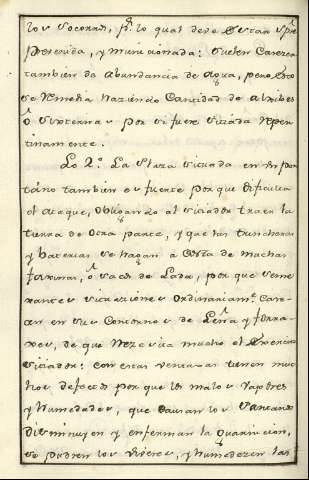 los Socorros, por lo qual deve estar siempre
prevenida, y municionada: suelen carecer
tambien de abundancia de Agua, pero esto
se remedia haciendo cantidad de Algibes
ô Sisternas por si fuere sitiada repen
tinamente.
Lo 2º. La Plaza situada en un pan
tano tambien es fuerte por que dificulta
el ataque, obligando al sitiador traer la
tierra de otra parte, y que las trincheras
y baterias se hagan a costa de muchas
faxinas, ô sacos de Lana, por que seme
xantes situaciones ordinariamte. care-
cen en sus contornos de Leña y forra-
xes, de que necesita mucho el Exercito
sitiador: con estas ventaxas tienen mu
chos defectos por que los malos vapores
y humedades, que causan los Pantanos
disminuyen y enferman la Guarnicion,
se pudren los viveres, y humedecen las